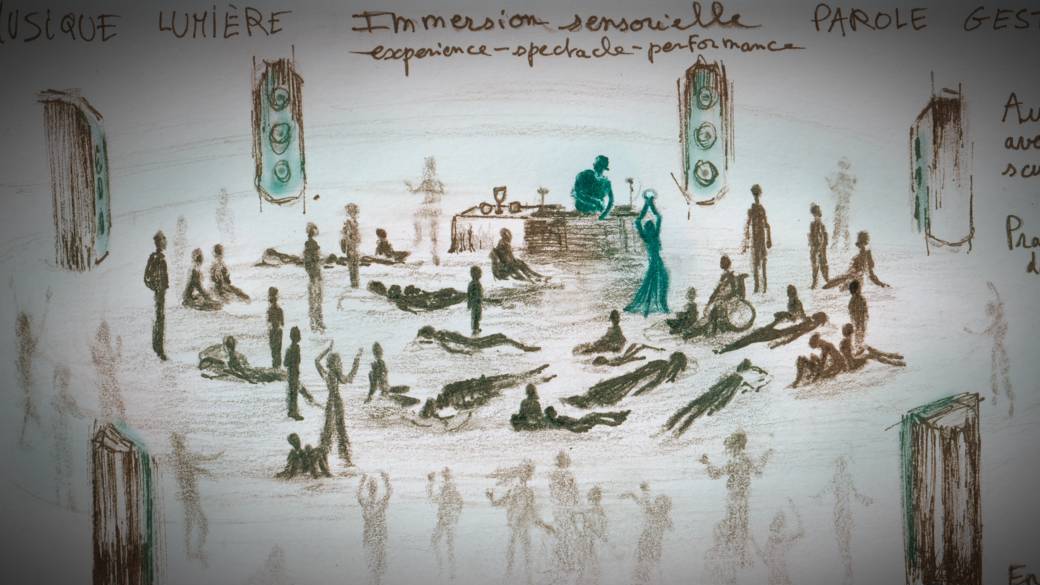 MUSIQUE LUMIÈRE Immersion sensorielle PAROLE GEST
experience-spectacle-performance
Au
ave
Pra
d
En